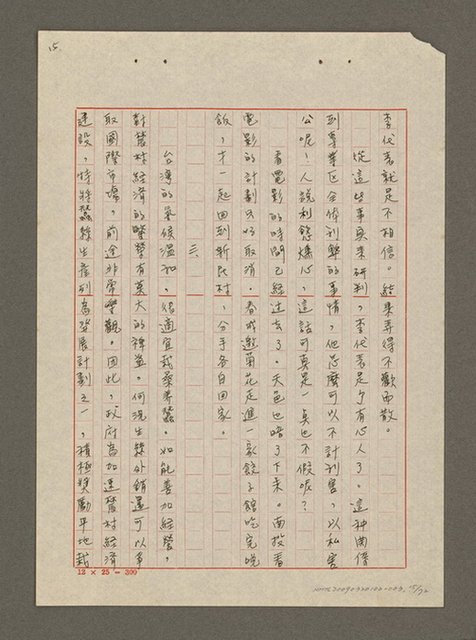 15.
李代表就是不相信。結果弄得不歡而散。
從這些事與來研判，李代表是个有心人了。這种關係
到專業区全体利弊的事情，但怎麼可以不計利害，以私害
公呢？人說利慾燻心，這話可真是一点也不假呢？
看電影的時間已經過去了。天色也暗了下來。面拟看
電影的計劃只好取消。春城邀菊花走進一家餃子館吃完晚
飯，才一起回到新民村，分手各自回家。
三、
台灣的氣候溫和，很適宜栽桑养蠶。如能善加經營，
對農村經濟的繁榮有莫大的裨益。何況生絲外銷還可以爭
取國際市場，前途非常樂觀。因此，政府為加速農村經濟
建設，特將蠶絲生產列為發展計劃之一，積極獎勵平地栽
12 × 25 = 300
15/72